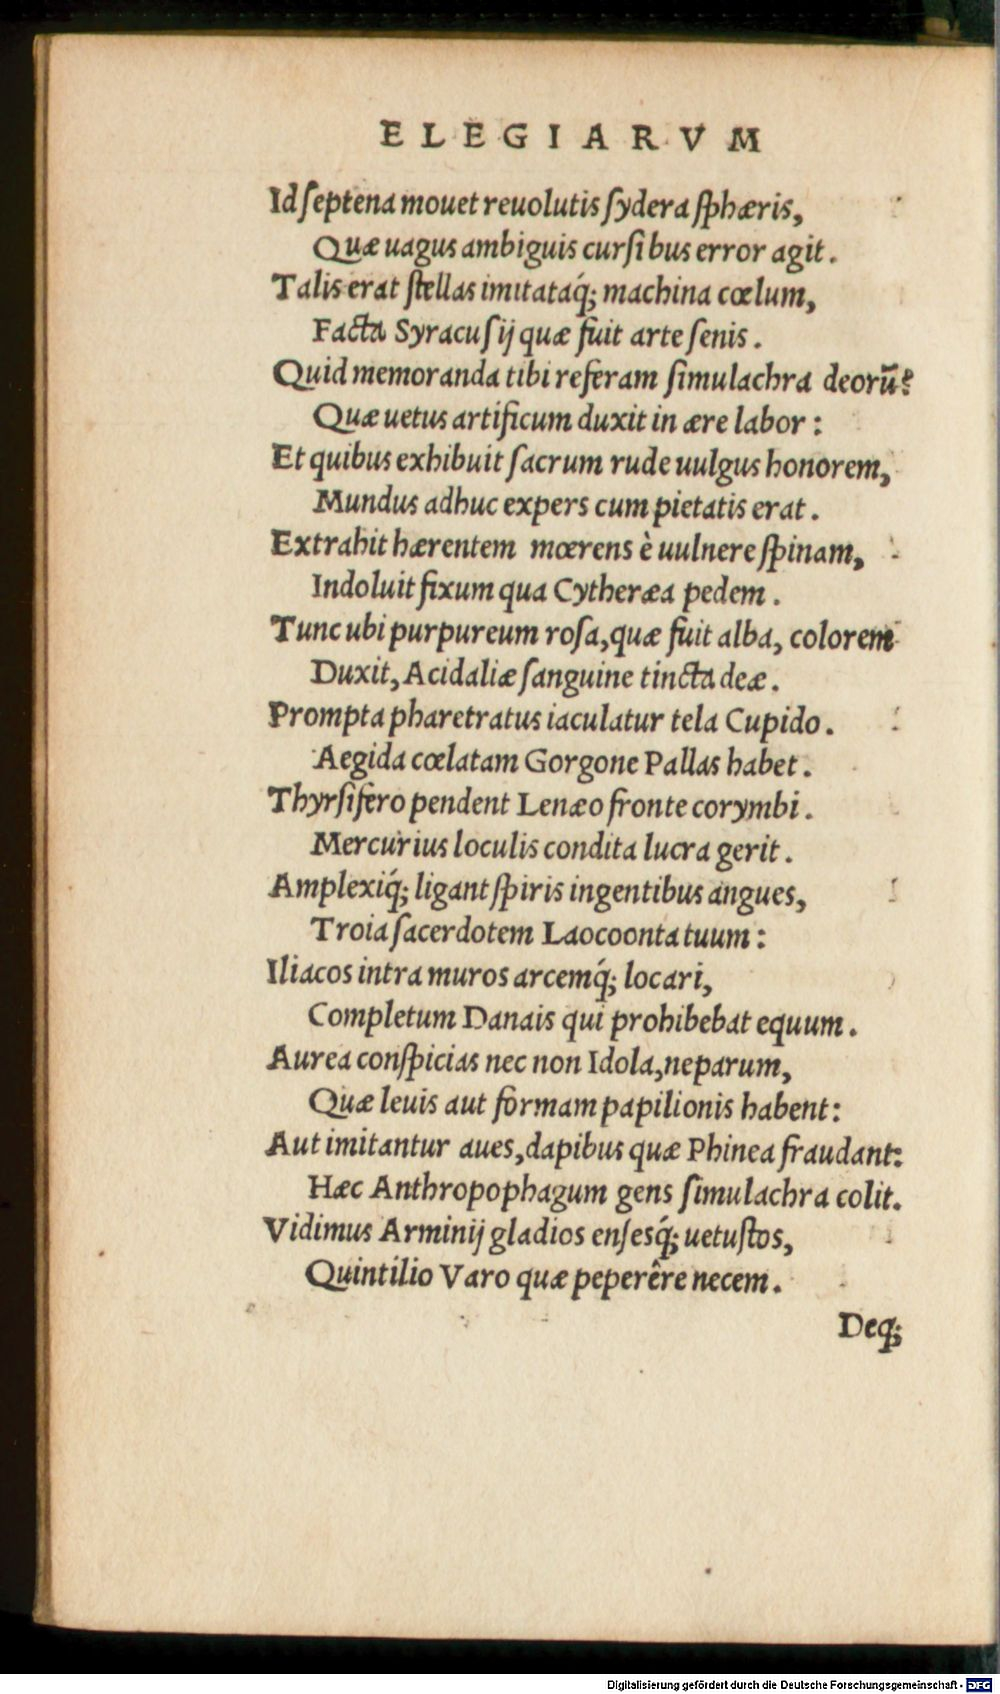 ELEGIARVM
Id ſeptena mouet reuolutis ſydera ſphæris,
Quæ uagus ambiguis curſibus error agit.
Talis erat ſtellas imitataq́; machina cœlum,
Facta Syracuſij quæ fuit arte ſenis.
Quid memoranda tibi referam ſimulachra deorū?
Quæ uetus artificum duxit in ære labor:
Et quibus exhibuit ſacrum rude uulgus honorem,
Mundus adhuc expers cum pietatis erat.
Extrahit hærentem mœrens è uulnere ſpinam,
Indoluit fixum qua Cytheræa pedem.
Tunc ubi purpureum roſa, quæ fuit alba, colorem
Duxit, Acidaliæ ſanguine tincta deæ.
Prompta pharetratus iaculatur tela Cupido.
Aegida cœlatam Gorgone Pallas habet.
Thyrſifero pendent Lenæo fronte corymbi.
Mercurius loculis condita lucra gerit.
Amplexiq́; ligant ſpiris ingentibus angues,
Troia ſacerdotem Laocoonta tuum:
Iliacos intra muros arcemq́; locari,
Completum Danais qui prohibebat equum.
Aurea conſpicias nec non Idola, neparum,
Quæ leuis aut formam papilionis habent:
Aut imitantur aues, dapibus quæ Phinea fraudant:
Hæc Anthropophagum gens ſimulachra colit.
Vidimus Arminij gladios enſesq́; uetuſtos,
Quintilio Varo quæ peperêre necem.
Deq;
Digitalisierung gefördert durch die Deutsche Forschungsgemeinschaft - DFG